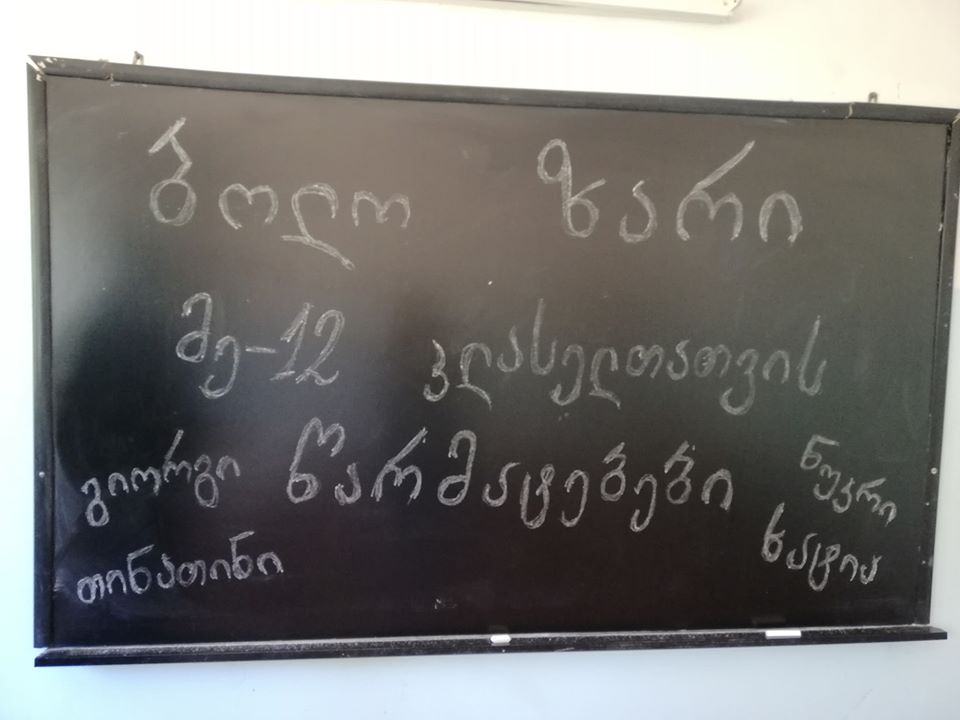 ბოლო ზარი
მე-12 კლასელთათვის
წარმატებები
გიორგი
თინათინი
ნუკრი
ხატია